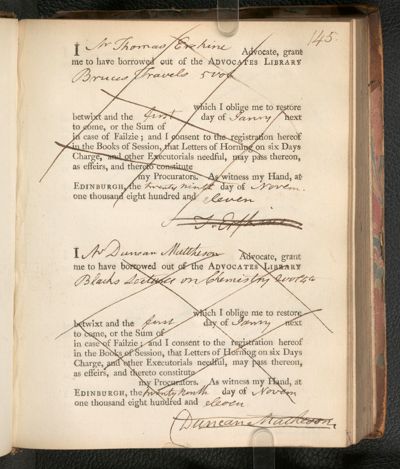 145.
I Mr Thomas Erskine Advocate, grant
me to have borrowed out of the ADVOCATES LIBRARY
Bruces Travels 5 vols
which I oblige me to restore
betwixt and the first day of Janry next
to come, or the Sum of
in case of Failzie; and I consent to the registration hereof
in the Books of Session, that Letters of Horning on six Days
Charge, and other Executorials needful, may pass thereon,
as effeirs, and thereto constitute
my Procurators. As witness my Hand, at
EDINBURGH, the twenty ninth day of Novem.
one thousand eight hundred and eleven
T. Erskine
I Mr Duncan Mattheson Advocate, grant
me to have borrowed out of the ADVOCATES LIBRARY
Blacks Lectures on Chemistry 2 vols 4to
which I oblige me to restore
betwixt and the first day of Janry next
to come, or the Sum of
in case of Failzie; and I consent to the registration hereof
in the Books of Session, that Letters of Horning on six Days
Charge, and other Executorials needful, may pass thereon,
as effeirs, and thereto constitute
my Procurators. As witness my Hand, at
EDINBURGH, the twenty ninth day of Novem
one thousand eight hundred and eleven
Duncan Matheson